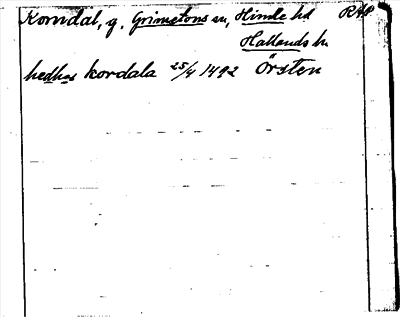 Korndal, g. Grimetons sn, Himle hd RAP
Hallands l.
hedhas kordala 25/4 1492 Örsten